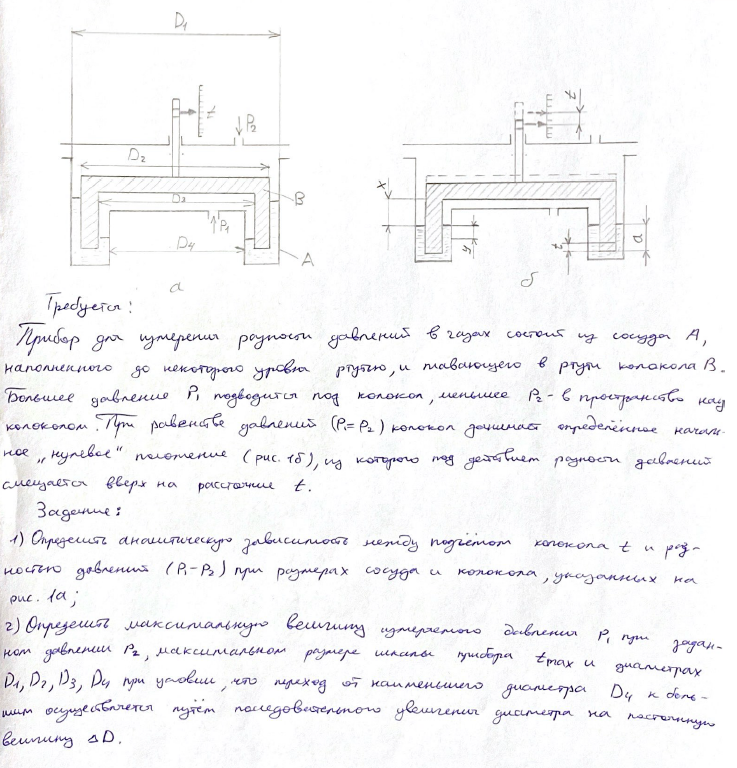 D₁
t
P₂
D₂
B
D₃
P₁
D₄
A
а
t
x
y
t
a
б
Требуется:
Прибор для измерения разности давлений в газах состоит из сосуда А,
наполненного до некоторого уровня ртутью, и плавающего в ртути колокола В.
Большее давление P₁ подводится под колокол, меньшее P₂ - в пространство над
колоколом. При равенстве давлений (P₁=P₂) колокол занимает определённое началь-
ное „нулевое“ положение (рис. 1б), из которого под действием разности давлений
смещается вверх на расстояние t.
Задание:
1) Определить аналитическую зависимость между подъёмом колокола t и раз-
ностью давлений (P₁-P₂) при размерах сосуда и колокола, указанных на
рис. 1а;
2) Определить максимальную величину измеряемого давления P₁ при задан-
ном давлении P₂, максимальном размере шкалы прибора tmax и диаметрах
D₁, D₂, D₃, D₄ при условии, что переход от наименьшего диаметра D₄ к боль-
шим осуществляется путём последовательного увеличения диаметра на постоянную
величину ΔD.